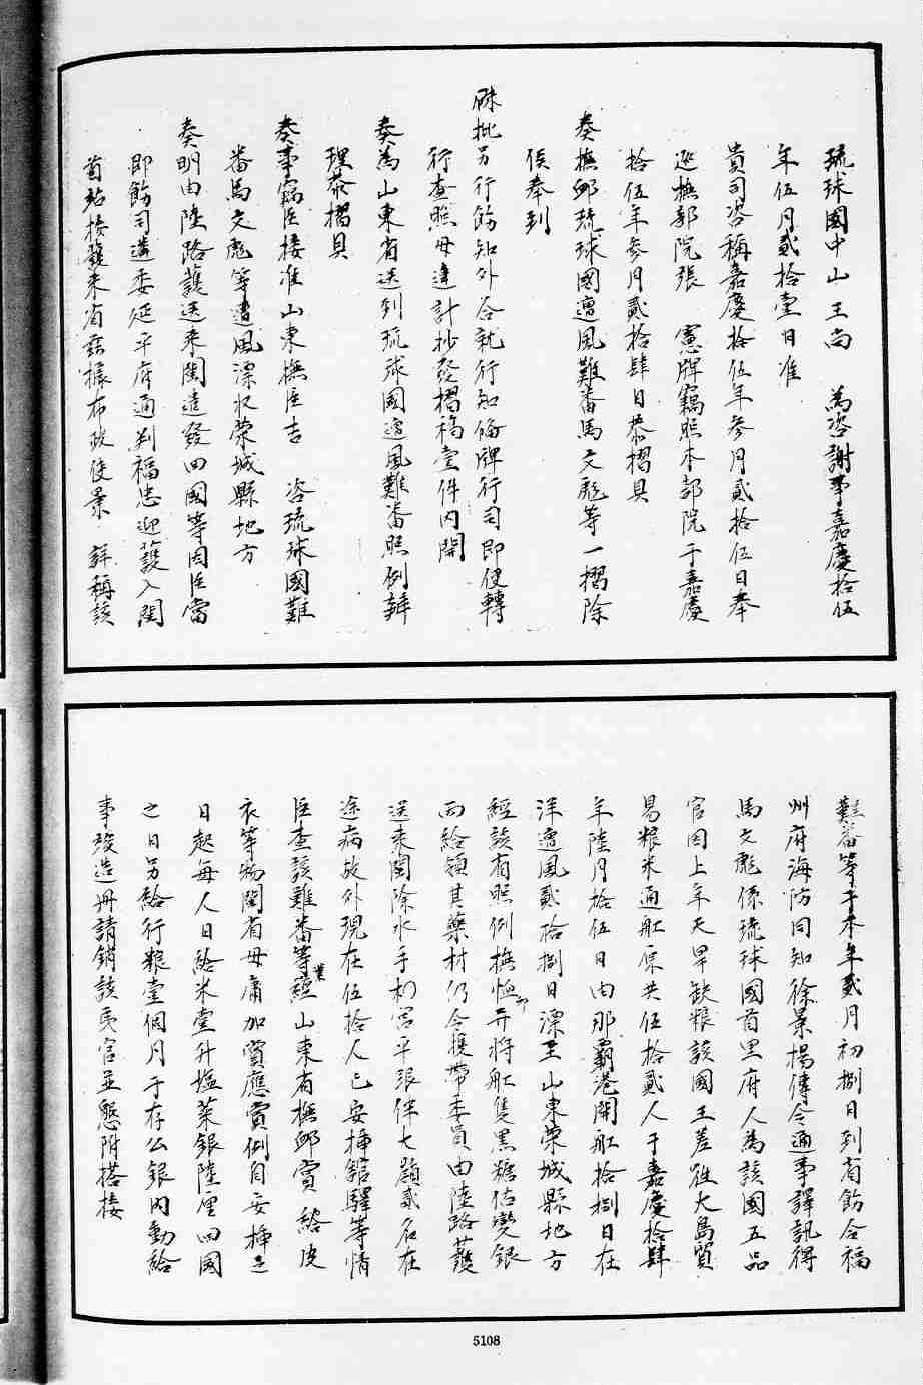 琉球國中山王尚　為咨謝事嘉慶拾伍
年伍月貳拾壹日准
貴司咨稱嘉慶拾伍年參月貳拾伍日奉
巡撫部院張　憲牌竊照本部院于嘉慶
拾伍年參月貳拾肆日恭摺具
奏撫卹琉球國遭風難番馬文彪等一摺除
俟奉到
硃批另行飭知外合就行知俻牌行司即便轉
行查照毋違計抄發摺稿壹件內開
奏為山東省送到琉球國遭風難番照例辦
理恭摺具
奏事竊臣接准山東撫臣吉　咨琉球國難
番馬文彪等遭風漂收榮城縣地方
奏明由陸路護送來閩遣發回國等因臣當
即飭司遴委延平府通判福忠迎護入閩
首站接護來省茲據布政使景　詳稱該
難番等于本年貳月初捌日到省飭令福
州府海防同知徐景揚傳令通事譯訊得
馬文彪係琉球國首里府人為該國五品
官因上年天旱缺糧該國王差往大島貿
易粮米通舡原共伍拾貳人于嘉慶拾肆
年陸月拾伍日由那霸港開舡拾捌日在
洋遭風貳拾捌日漂至山東榮城縣地方
經該省照例撫恤并將舡隻黑糖估變銀
両給領其藥材仍令攜帶委員由陸路護
送來閩除水手初宮平張伴七顯貳名在
途病故外現在伍拾人已安揷館驛等情
臣查該難番等業經山東省撫卹賞給皮
衣等物閩省毋庸加賞應賞例自安揷之
日起每人日給米壹升塩菜銀陸厘回國
之日另給行粮壹個月于存公銀內動給
事竣造冊請銷該夷官並懇附搭接
5108